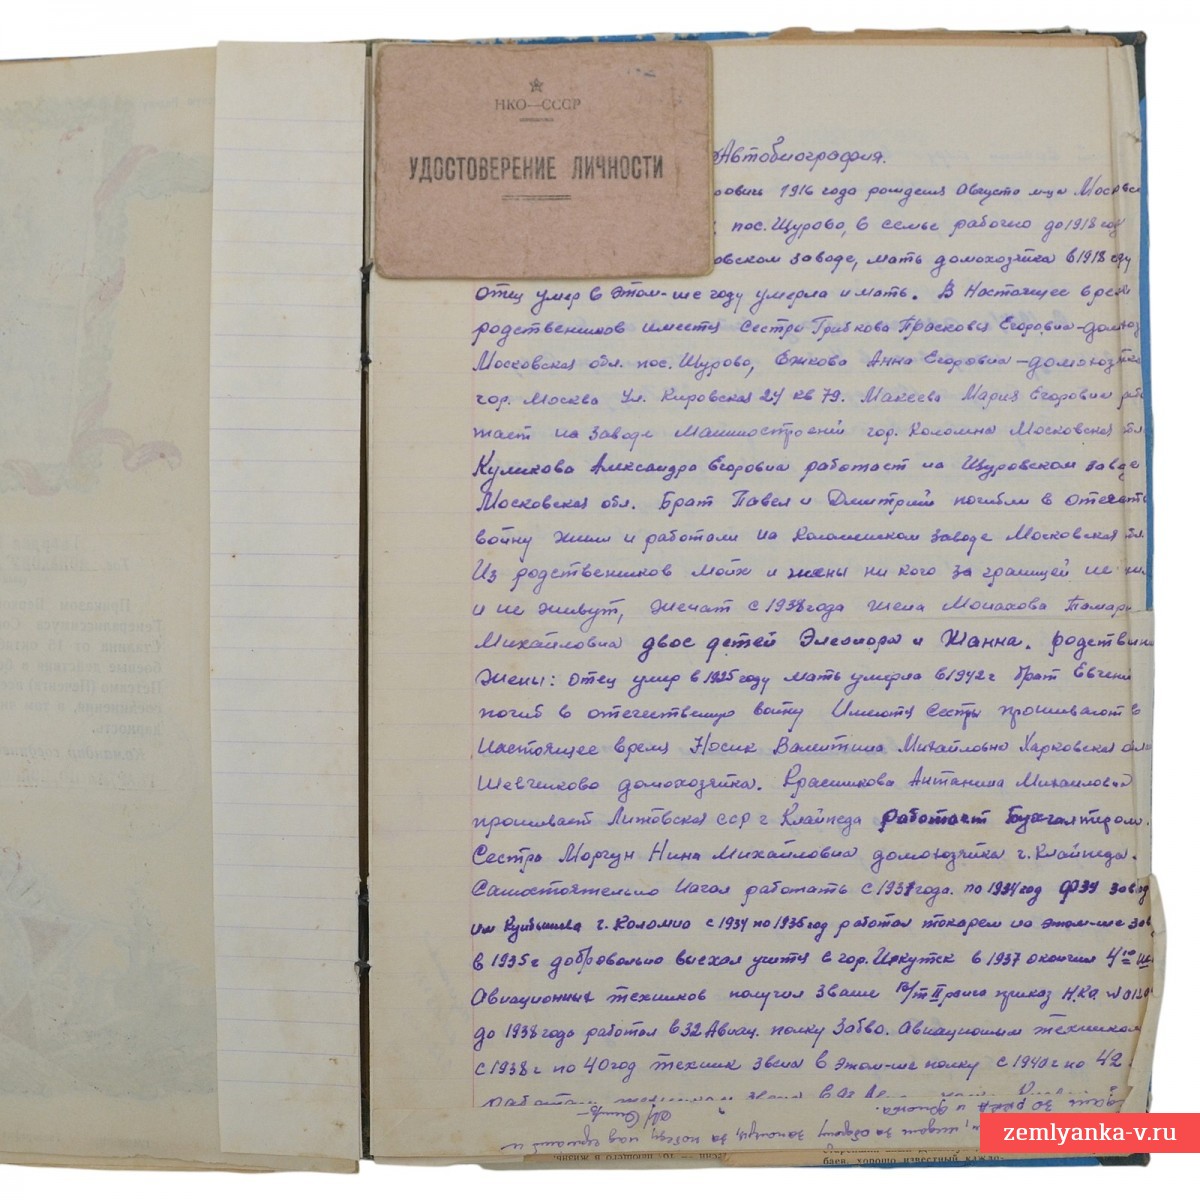 НКО—СССР
УДОСТОВЕРЕНИЕ ЛИЧНОСТИ
Автобиография.
рович 1916 года рождения Августа м-ца Московс
пос. Щурово, в семье рабочего до 1918 году
овском заводе, мать домохозяйка в 1918 году
Отец умер в этом-же году умерла и мать. В Настоящее врем
родственников имеются Сестры Грибкова Прасковья Егоровна – домохоз
Московская обл. пос. Щурово, Ежкова Анна Егоровна – домохозяйка
гор. Москва Ул. Кировская 24 кв 79. Макеева Мария Егоровна рабо
тает на заводе Машиностроений гор. Коломна Московская обл.
Куликова Александра Егоровна работает на Щуровском заводе
Московская обл. Брат Павел и Дмитрий погибли в отечеств
войну жили и работали на Коломенском заводе Московская обл.
Из родственников моих и жены ни кого за границей не жил
и не живут, женат с 1938 года жена Монахова Тамара
Михайловна двое детей Элеонора и Жанна. родственни
жены: отец умер в 1925 году мать умерла в 1942 г брат Евгени
погиб в отечественную войну Имеются Сестры проживают в
настоящее время Носик Валентина Михайловна Харковская обл
Шевченково домохозяйка. Красникова Антанина Михайловна
проживает Литовская ССР г Клайпеда работает бухгалтером.
Сестра Моргун Нина Михайловна домохозяйка г. Клайпеда.
Самостоятельно начал работать с 1931 года. по 1934 год ФЗУ завод
им Куйбышева г. Коломна с 1934 по 1935 год работал токарем на этом-же зав
в 1935 г добровольно выехал учится в гор. Иркутск в 1937 окончил 4ую
Авиационных техников получил звание в/т II ранга приказ Н.К.О. №
до 1938 года работал в 32 Авиац. полку Забво. Авиационным техником
с 1938 г по 40 год техник звена в этом-же полку с 1940 г по 42
zemlyanka-v.ru